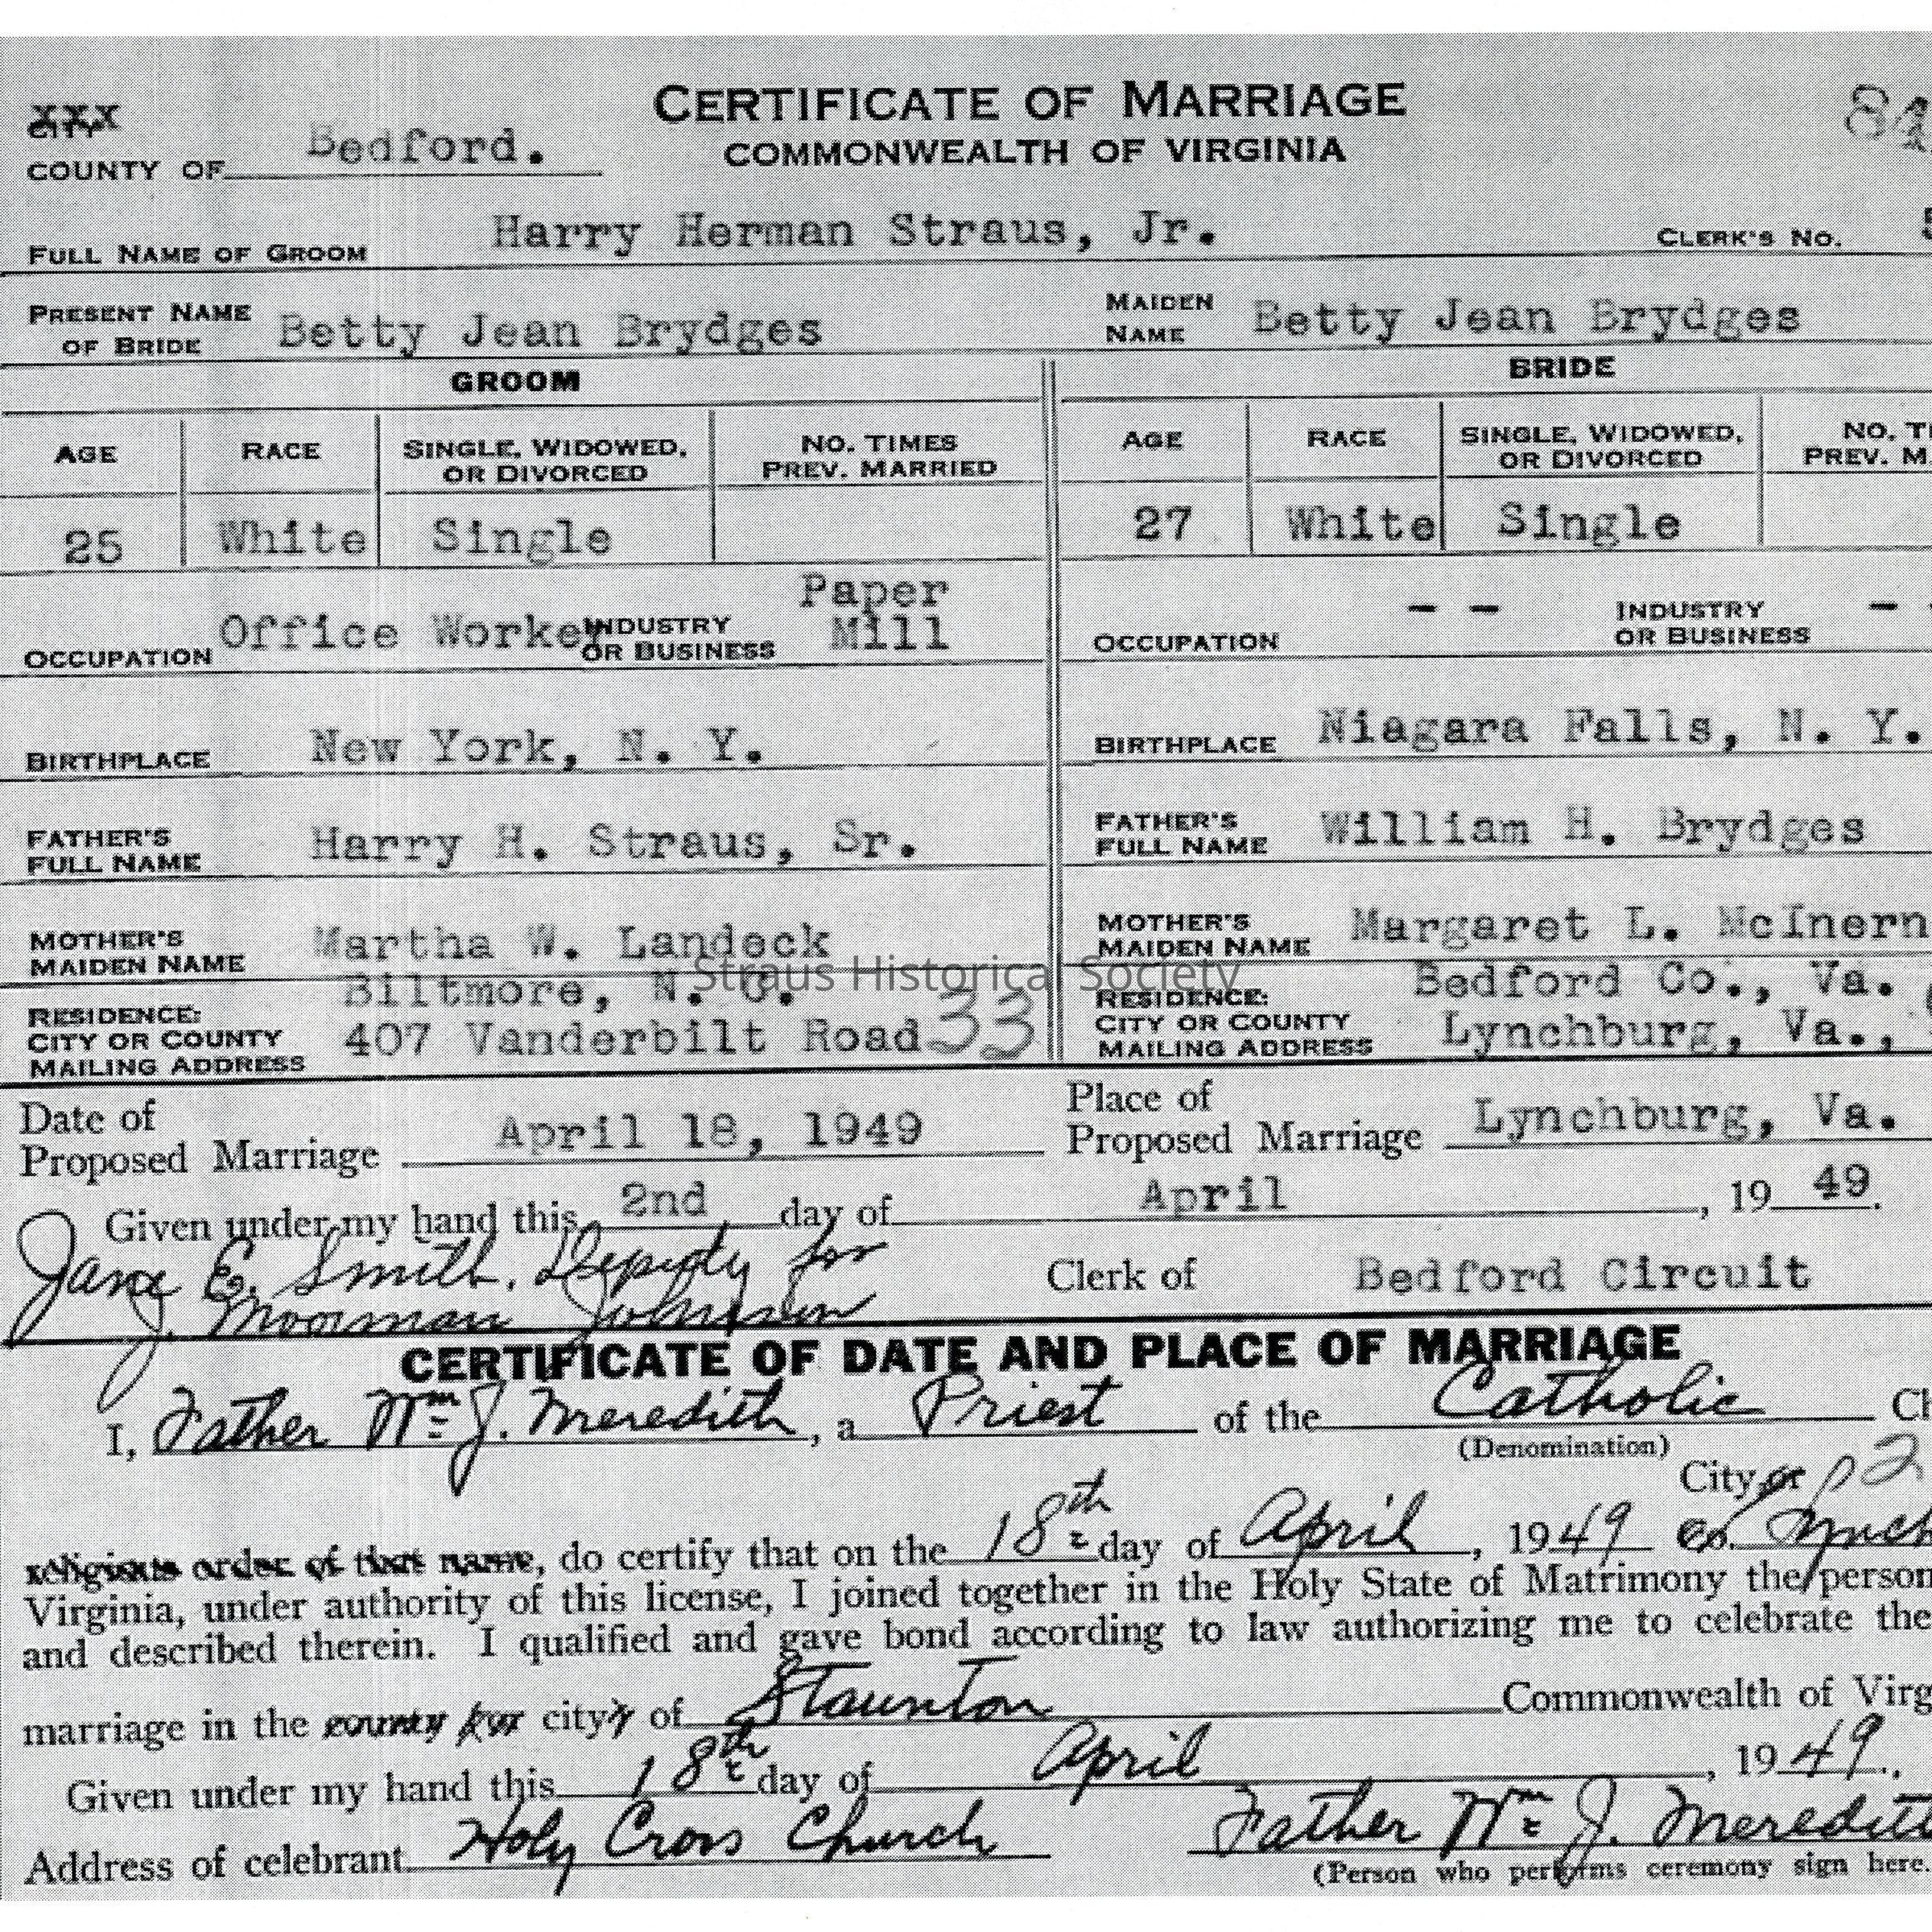 CERTIFICATE OF MARRIAGE
COMMONWEALTH OF VIRGINIA
XXX
CITY
COUNTY OF Bedford.
FULL NAME OF GROOM Harry Herman Straus, Jr. CLERK'S NO.
PRESENT NAME OF BRIDE Betty Jean Brydges MAIDEN NAME Betty Jean Brydges
GROOM BRIDE
AGE RACE SINGLE, WIDOWED, OR DIVORCED NO. TIMES PREV. MARRIED AGE RACE SINGLE, WIDOWED, OR DIVORCED NO. TI PREV. M
25 White Single 27 White Single
OCCUPATION Office Worker INDUSTRY OR BUSINESS Paper Mill OCCUPATION - - INDUSTRY OR BUSINESS -
BIRTHPLACE New York, N. Y. BIRTHPLACE Niagara Falls, N. Y.
FATHER'S FULL NAME Harry H. Straus, Sr. FATHER'S FULL NAME William H. Brydges
MOTHER'S MAIDEN NAME Martha W. Landeck MOTHER'S MAIDEN NAME Margaret L. McInern
Straus Historical Society
RESIDENCE: CITY OR COUNTY Biltmore, N. C. RESIDENCE: CITY OR COUNTY Bedford Co., Va.
MAILING ADDRESS 407 Vanderbilt Road 33 MAILING ADDRESS Lynchburg, Va.,
Date of Proposed Marriage April 18, 1949 Place of Proposed Marriage Lynchburg, Va.
Given under my hand this 2nd day of April, 19 49.
Jane E. Smith, Deputy for
J. Moorman Johnson Clerk of Bedford Circuit
CERTIFICATE OF DATE AND PLACE OF MARRIAGE
I, Father Wm J. Meredith, a Priest of the Catholic Ch
(Denomination)
City or
religious order of that name, do certify that on the 18th day of April, 1949 Co. Lynch
Virginia, under authority of this license, I joined together in the Holy State of Matrimony the person
and described therein. I qualified and gave bond according to law authorizing me to celebrate the
marriage in the county (or city) of Staunton Commonwealth of Virg
Given under my hand this 18th day of April, 1949.,
Address of celebrant Holy Cross Church Father Wm J. Meredit
(Person who performs ceremony sign here.